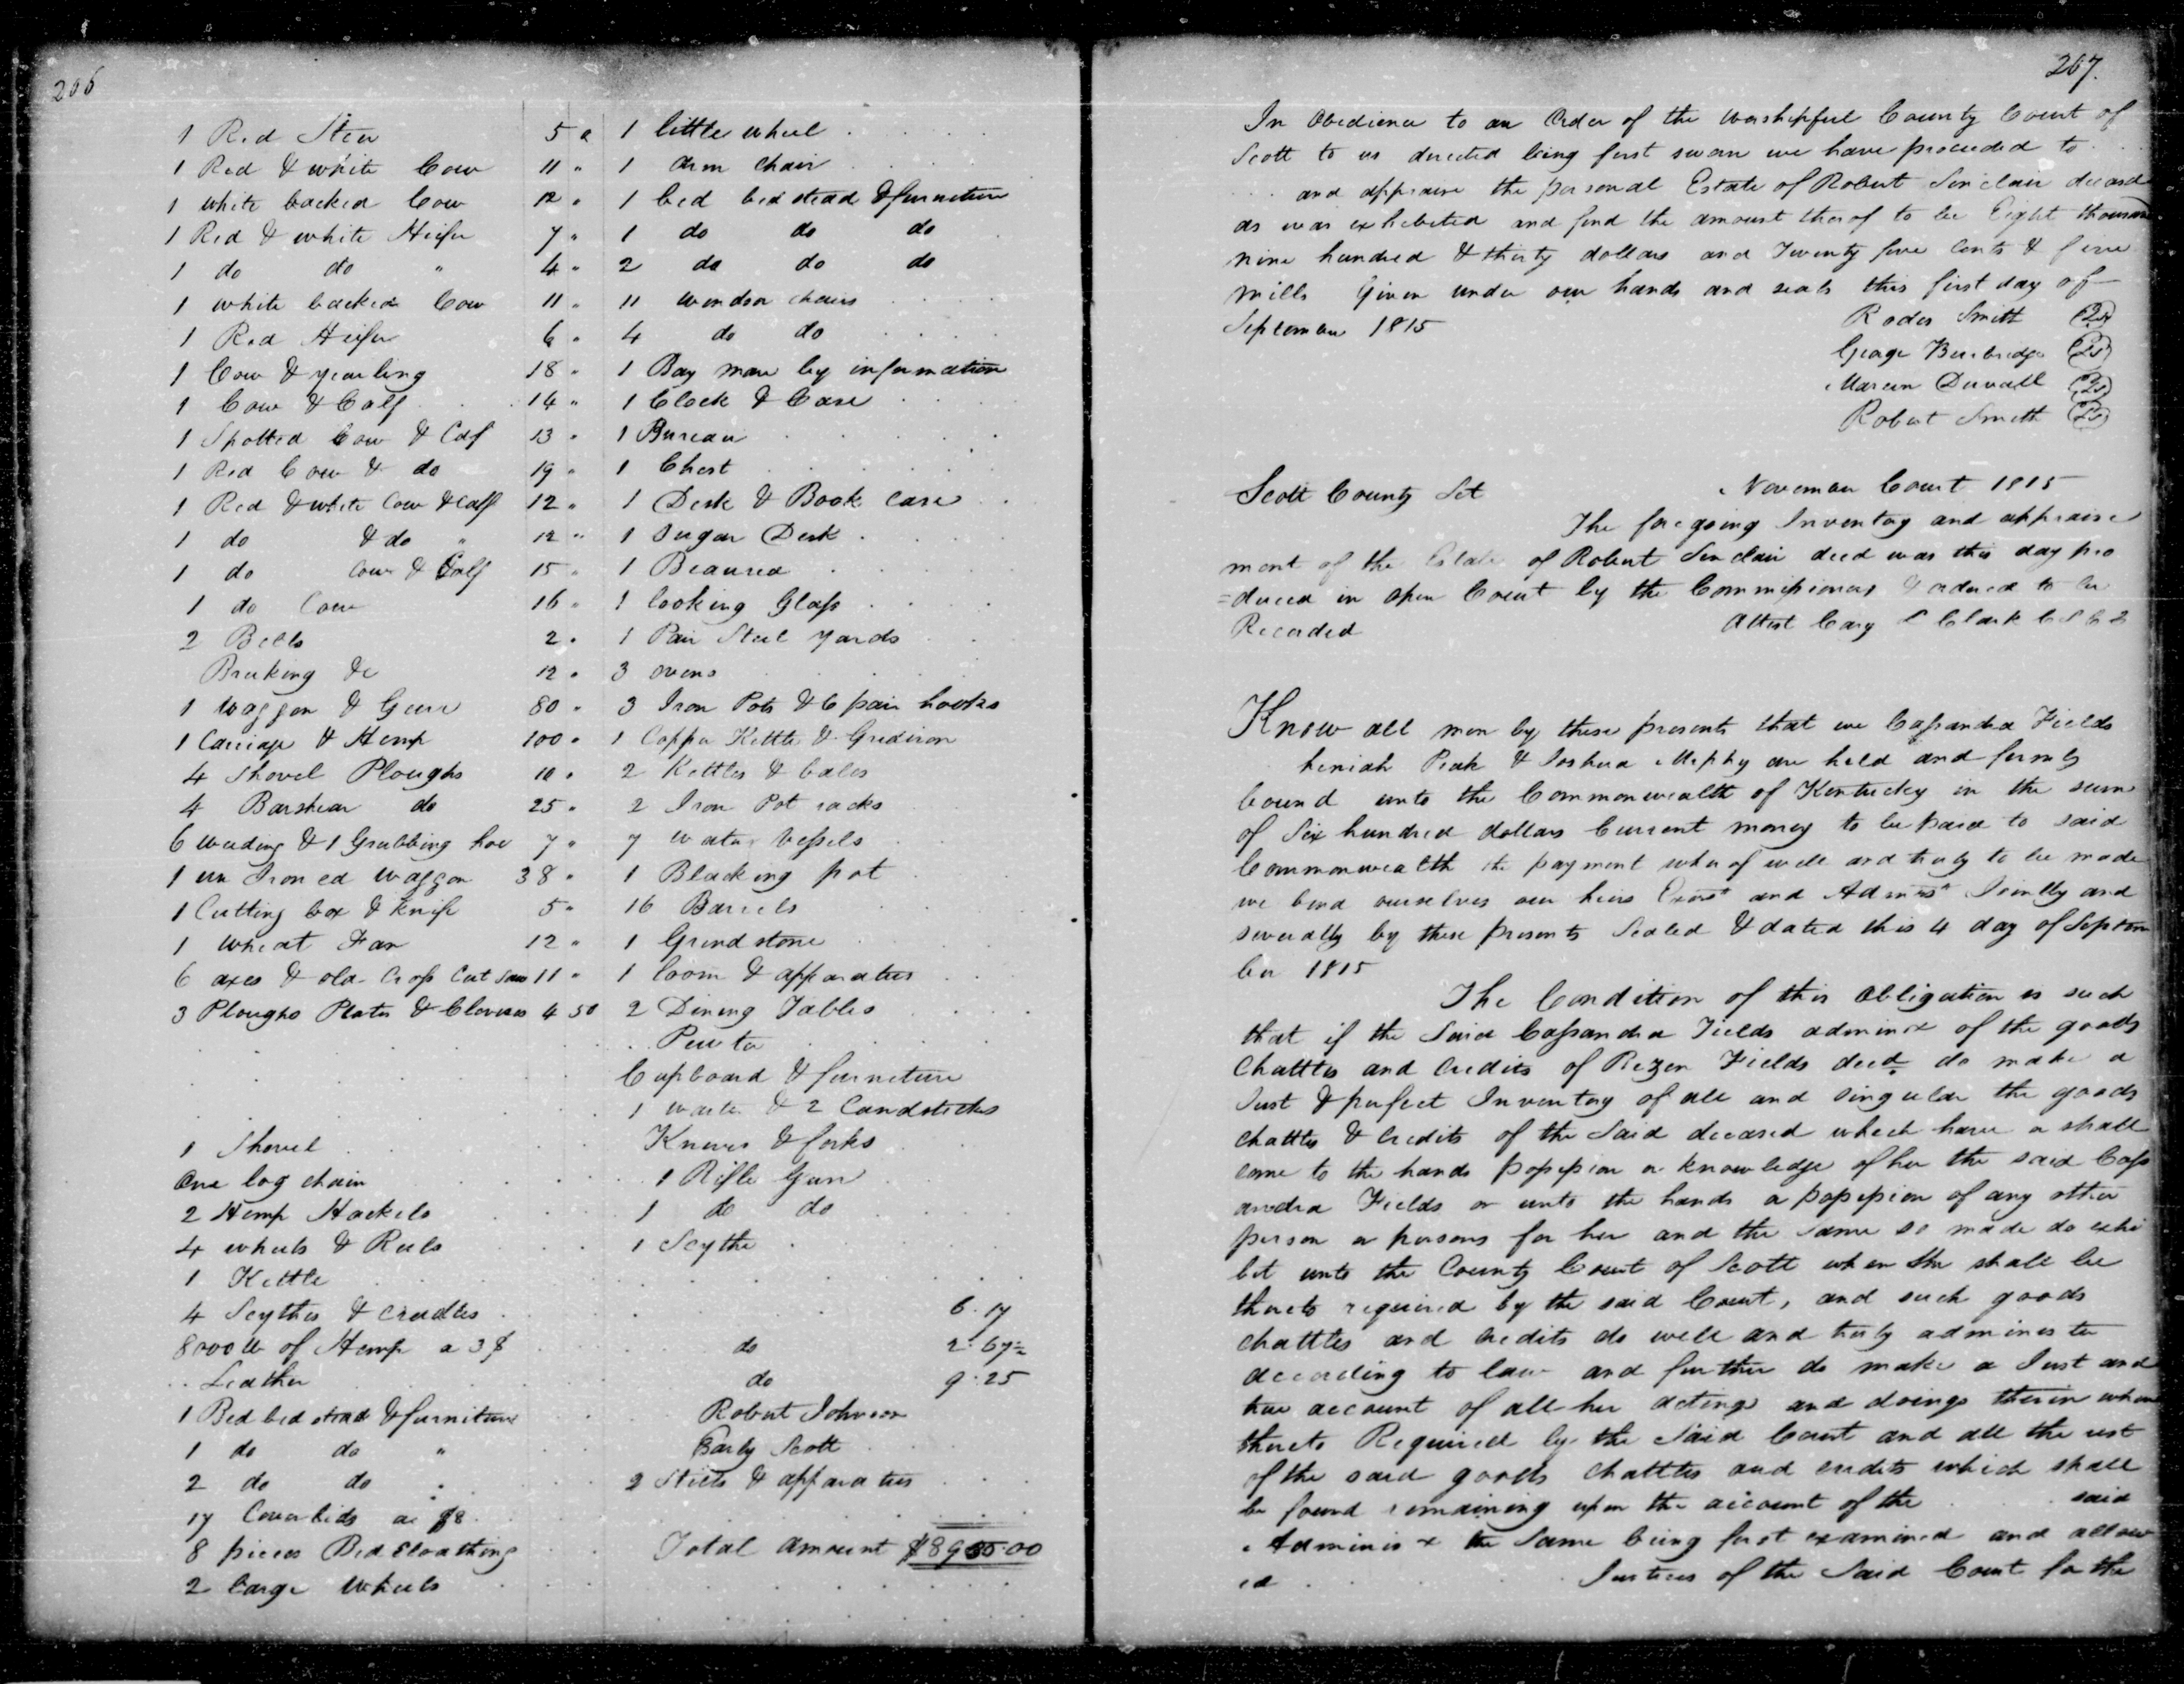 206
1 Red Steer 5 "
1 Red & white Cow 11 "
1 white backed Cow 12 "
1 Red & white Heifer 7 "
1 do do " 4 "
1 white backed Cow 11 "
1 Red Heifer 6 "
1 Cow & yearling 18 "
1 Cow & Calf 14 "
1 Spotted Cow & Calf 13 "
1 Red Cow & do 19 "
1 Red & white Cow & Calf 12 "
1 do & do " 12 "
1 do Cow & Calf 15 "
1 do Cow 16 "
2 Bells 2 "
Breaking &c 12 "
1 Waggon & Gear 80 "
1 Carriage & Hemp 100 "
4 Shovel Ploughs 10 "
4 Barshear do 25 "
6 weeding & 1 Grubbing hoe 7 "
1 un Ironed waggon 38 "
1 Cutting box & Knife 5 "
1 Wheat Fan 12 "
6 axes & old Cross Cut Saw 11 "
3 Ploughs Plates & Clevises 4 50
1 Shovel
One log chain
2 Hemp Hackels
4 wheels & Reels
1 Kettle
4 Scythes & Cradles
8000 lb of Hemp a 3 $
Leather
1 Bed bedstead & furniture
1 do do "
2 do do "
17 Coverlids at $8
8 pieces Bed Cloathing
2 large Wheels
1 little wheel
1 arm Chair
1 bed bedstead & furniture
1 do do do
2 do do do
11 windsor chairs
4 do do
1 Bay mare by information
1 Clock & Case
1 Bureau
1 Chest
1 Desk & Book Case
1 Sugar Desk
1 Beaurea
1 looking Glass
1 Pair Steel yards
3 ovens
3 Iron Pots & 6 pair hooks
1 Copper Kettle & Gridiron
2 Kettles & bales
2 Iron Pot racks
7 water Vessels
1 Blacking pot
16 Barrels
1 Grindstone
1 loom & apparatus
2 Dining Tables
Pewter
Cupboard & furniture
1 waiter & 2 Candsticks
Knives & forks
1 Rifle Gun
1 do do
1 Scythe
6.17
do 2.67
do 9.25
Robert Johnson
Early Scott
2 Stills & apparatus
Total amount
267.
In Obedience to an Order of the worshipful County Court of
Scott to us directed being first sworn we have proceeded to
and appraise the personal Estate of Robert Sinclair deceasd
as was exhibeted and find the amount therof to be Eight thousand
nine hundred & thirty dollars and Twenty five Cents & five
mills Given under our hands and seals this first day of
September 1815
Rodes Smith
George Burbridge
Mareen Duvall
Robert Smith
Scott County Sct November Court 1815
The foregoing Inventory and appraise
ment of the Estate of Robert Sinclair decd was this day pro
=duced in open Court by the Commissioners & ordered to be
Recorded
Attest Cary L Clark
Know all men by these presents that we Cassandra Fields
Peak & Joshua are held and firmly
bound unto the Commonwealth of Kentucky in the sum
of Six hundred dollars Current money to be paid to said
Commonwealth the payment wherof well and truly to be made
we bind ourselves our heirs Exors and Admrs Jointly and
severally by these presents Sealed & dated this 4 day of Septem
ber 1815
The Condition of this Obligation is such
that if the Said Cassandra Fields adminx of the goods
Chattles and Credits of Rezen Fields decd do make a
Just & perfect Inventory of all and singular the goods
Chattles & Credits of the Said deceased which have or shall
come to the hands possession or knowledge of her the said Cass
andra Fields or unto the hands or possession of any other
person or persons for her and the same so made do exhi
bit unto the County Court of Scott when she shall be
thereto required by the said Court, and such goods
chattles and credits do well and truly administer
according to law and further do make a Just and
true account of all her actings and doings therin when
thereto Required by the Said Court and all the rest
of the said goods chattles and credits which shall
be found remaining upon the account of the said
Adminisx the Same being first examined and allow
ed Justices of the Said Court for the